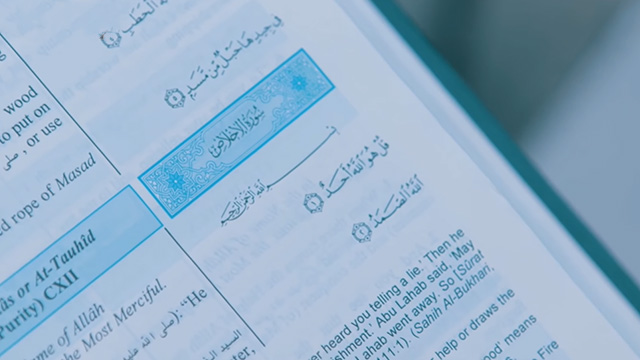 wood
to put on
, or use
rope of Masad
ٱلْحَطَبِ ٤
فِى جِيدِهَا حَبْلٌ مِّن مَّسَدٍ ٥
سُورَةُ الإِخْلَاصِ
بِسْمِ ٱللَّهِ ٱلرَّحْمَٰنِ ٱلرَّحِيمِ
قُلْ هُوَ ٱللَّهُ أَحَدٌ ١
ٱللَّهُ ٱلصَّمَدُ ٢
or At-Tauhîd
Purity) CXII
of Allâh
the Most Merciful.
(صلى الله عليه وسلم): "He
heard you telling a lie.' Then he
Abu Lahab said, 'May
Lahab went away. So [Sûrat
111:1). (Sahih Al-Bukhari,
help or draws the
ood' means
Fire